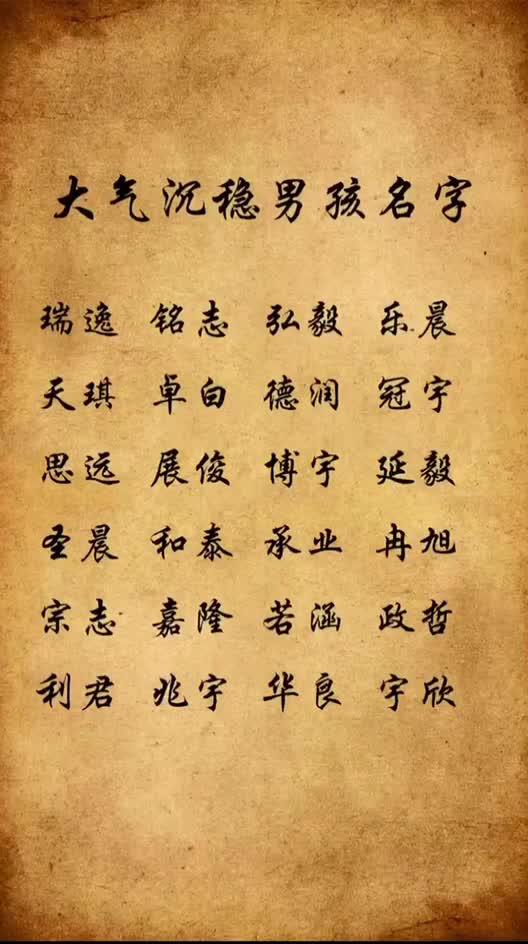 大气沉稳男孩名字
瑞逸 铭志 弘毅 乐晨
天琪 卓白 德润 冠宇
思远 展俊 博宇 延毅
圣晨 和泰 承业 冉旭
宗志 嘉隆 若涵 政哲
利君 兆宇 华良 宇欣